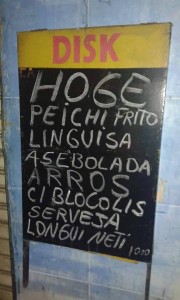 DISK
HOGE
PEICHI FRITO
LINGUISA
ASEBOLADA
ARROS
CI BLOCOLIS
SERVEJA
LONGUI NETI